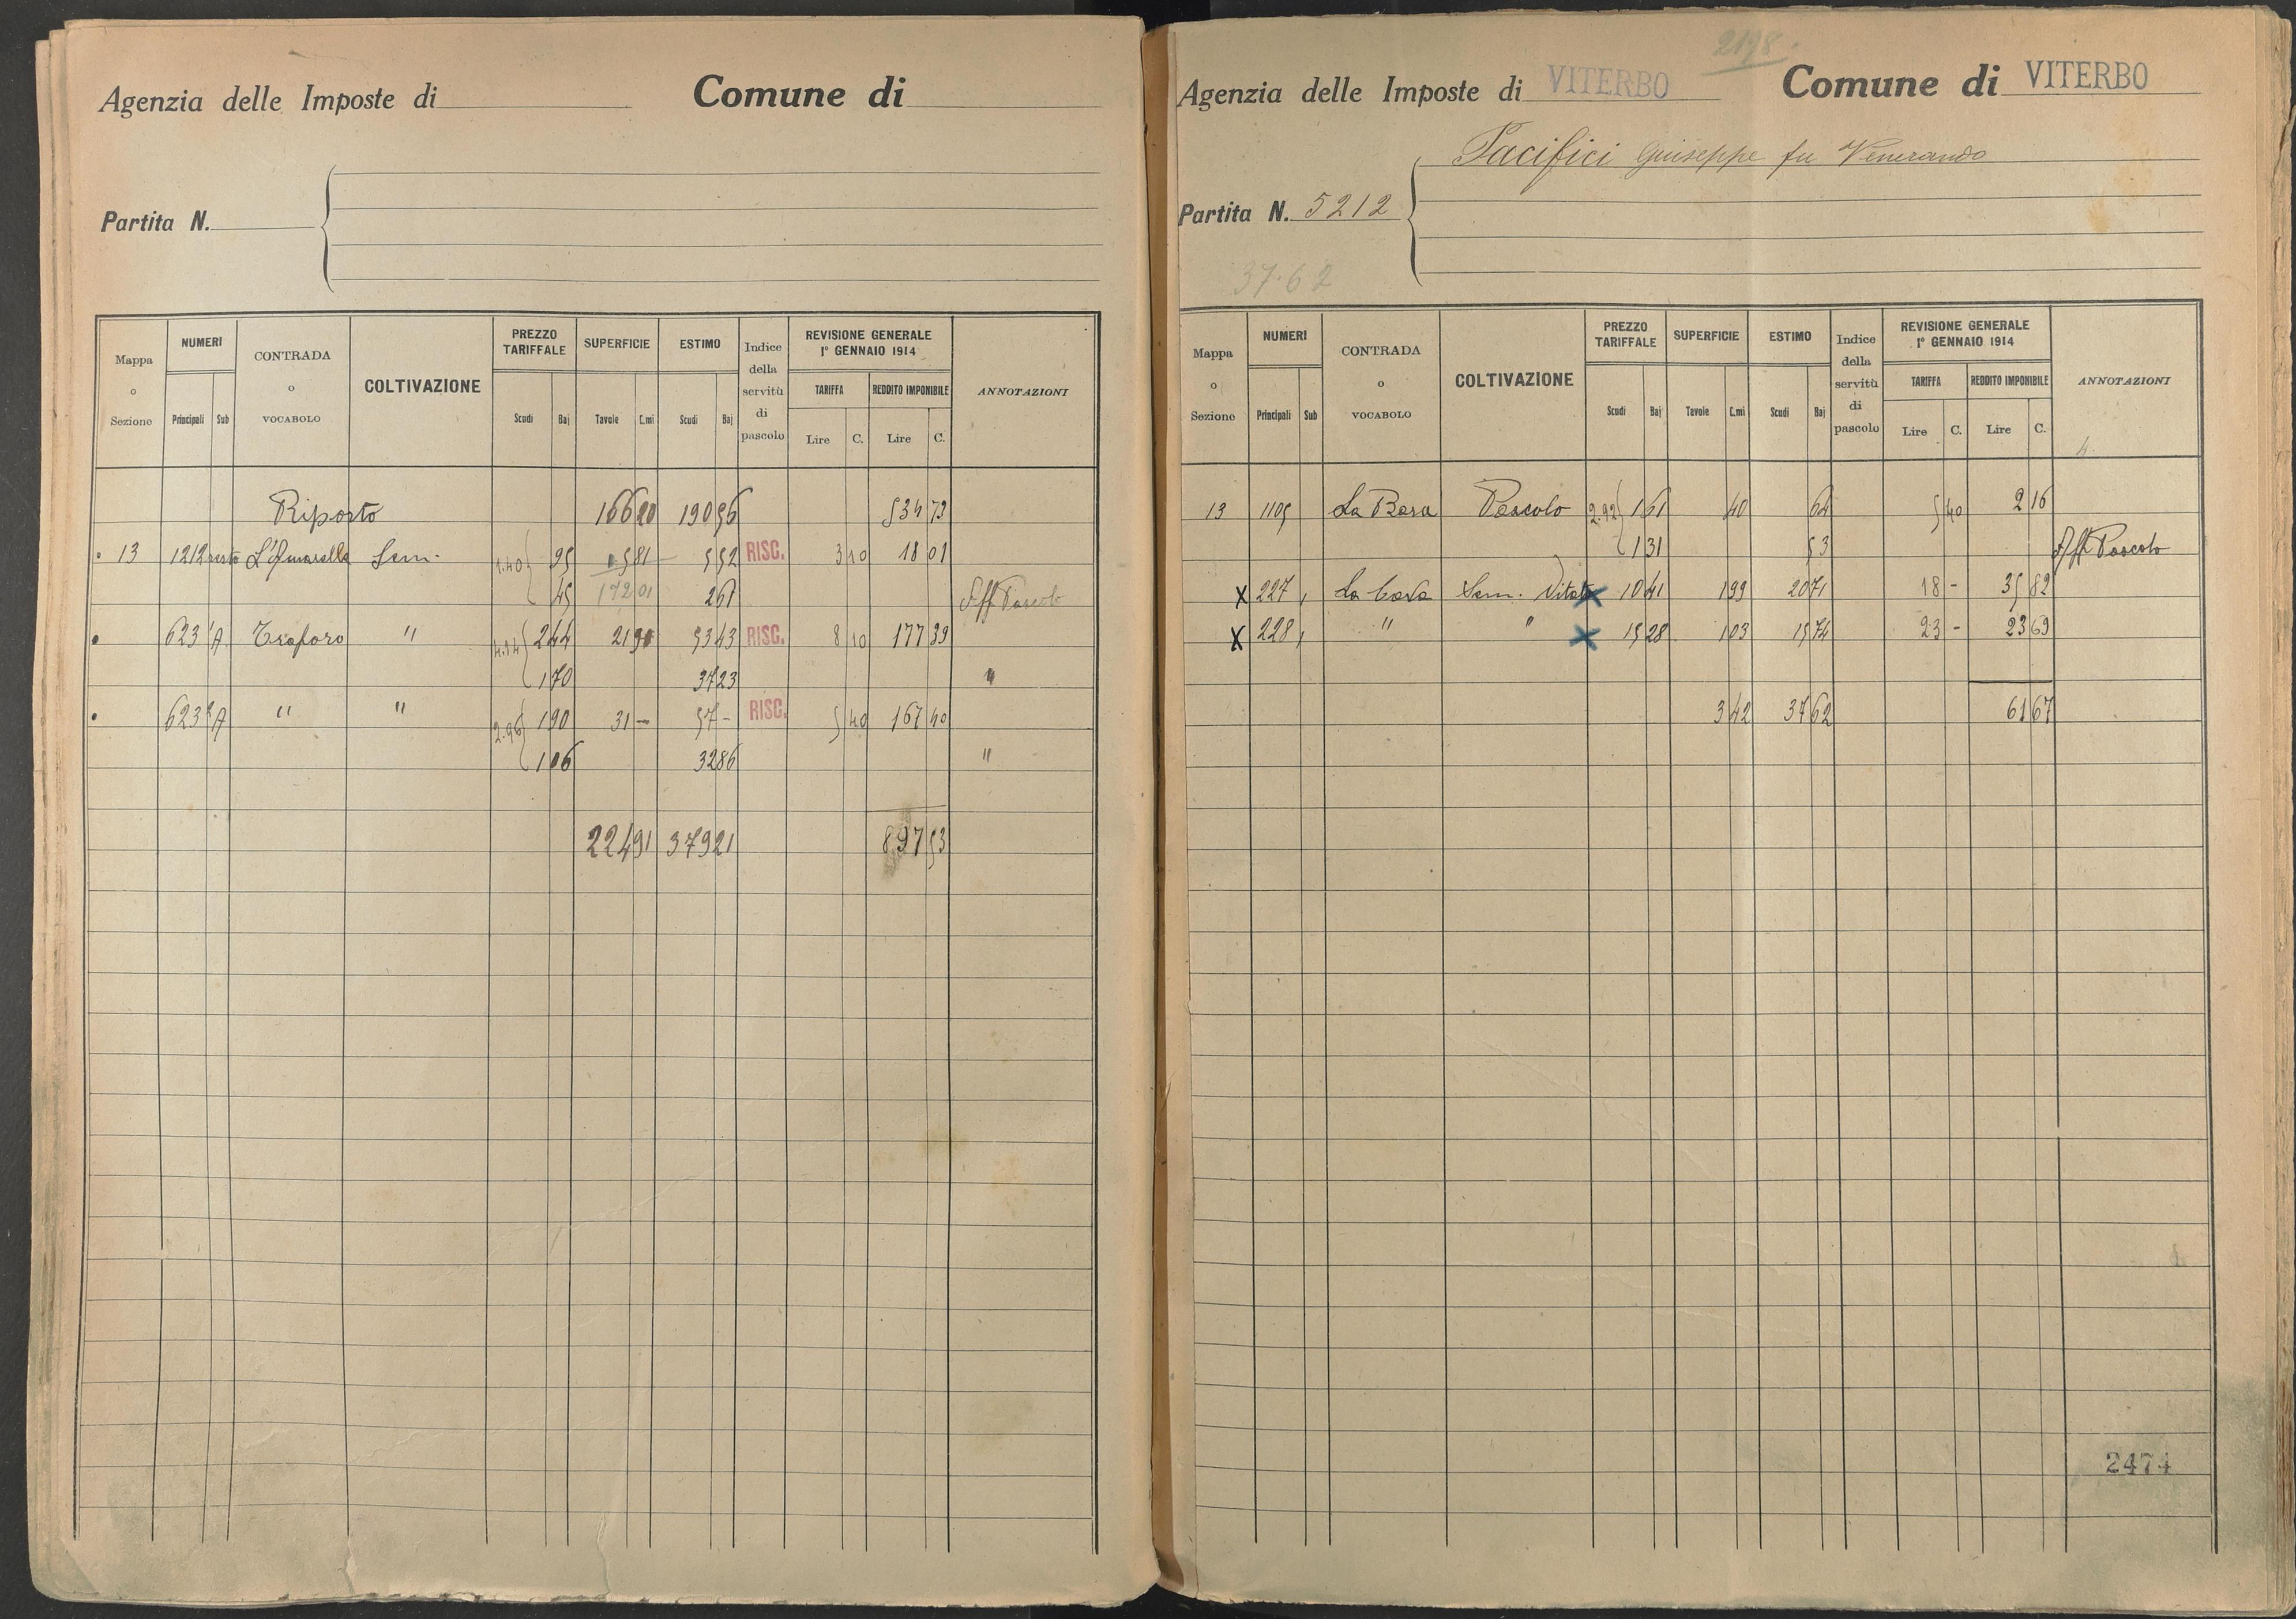 Agenzia delle Imposte di Comune di
Partita N.
Mappa o Sezione NUMERI Principali Sub CONTRADA o VOCABOLO COLTIVAZIONE PREZZO TARIFFALE Scudi Baj SUPERFICIE Tavole C.mi ESTIMO Scudi Baj Indice della servitù di pascolo REVISIONE GENERALE 1° GENNAIO 1914 TARIFFA Lire C. REDDITO IMPONIBILE Lire C. ANNOTAZIONI
Riporto 166 20 190 56 534 73
13 1212 resto L'Amarella Sem. 1.40 95 5 81 5 52 RISC. 3 10 18 01
45 172 01 2 61 Aff Pascolo
623 1/A Traforo " 4.14 2 44 21 90 53 43 RISC. 8 10 177 39
1 70 37 23 "
623 2/A " " 2.96 1 90 31 - 57 - RISC. 5 40 167 40
1 06 32 86 "
224 91 379 21 897 53
2198
Agenzia delle Imposte di VITERBO Comune di VITERBO
Pacifici Giuseppe fu Venerando
Partita N. 5212
37.62
Mappa o Sezione NUMERI Principali Sub CONTRADA o VOCABOLO COLTIVAZIONE PREZZO TARIFFALE Scudi Baj SUPERFICIE Tavole C.mi ESTIMO Scudi Baj Indice della servitù di pascolo REVISIONE GENERALE 1° GENNAIO 1914 TARIFFA Lire C. REDDITO IMPONIBILE Lire C. ANNOTAZIONI
4
13 1105 Pascolo 2.92 1 61 40 64 5 40 2 16
1 31 53 Aff Pascolo
X 227 La Cava Sem. Vitato X 10 41 1 99 20 71 18 - 35 82
X 228 " " X 15 28 1 03 15 74 23 - 23 69
3 42 37 62 61 67
2474